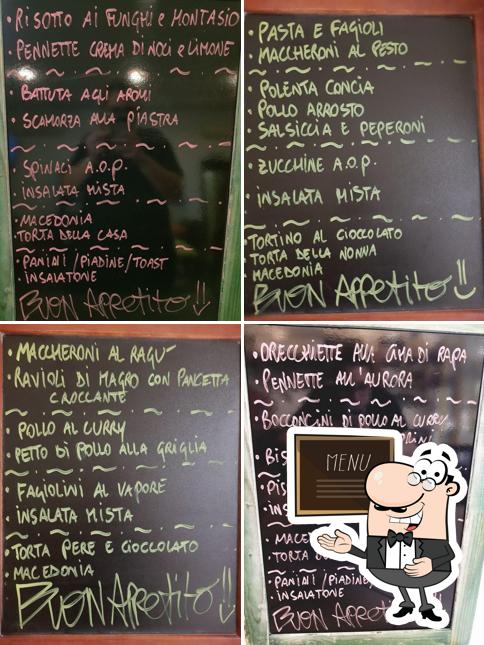 • RISOTTO AI FUNGHI e MONTASIO
• PENNETTE CREMA DI NOCI e LIMONE
• BATTUTA AGLI AROMI
• SCAMORZA ALLA PIASTRA
• SPINACI A.O.P.
• INSALATA MISTA
• MACEDONIA
• TORTA DELLA CASA
• PANINI / PIADINE / TOAST
• INSALATONE
BUON APPETITO !!
• PASTA E FAGIOLI
• MACCHERONI AL PESTO
• POLENTA CONCIA
• POLLO ARROSTO
• SALSICCIA E PEPERONI
• ZUCCHINE A.O.P.
• INSALATA MISTA
• TORTINO AL CIOCCOLATO
• TORTA DELLA NONNA
• MACEDONIA
BUON APPETITO !!
• MACCHERONI AL RAGU'
• RAVIOLI DI MAGRO CON PANCETTA
CROCCANTE
• POLLO AL CURRY
• PETTO DI POLLO ALLA GRIGLIA
• FAGIOLINI AL VAPORE
• INSALATA MISTA
• TORTA PERE E CIOCCOLATO
• MACEDONIA
BUON APPETITO !!
• ORECCHIETTE ALLA CIMA DI RAPA
• PENNETTE ALL'AURORA
• BOCCONCINI DI POLLO AL CURRY
• BIS
MENU
• PIS
• INS
• MACE
• TORTA
• PANINI / PIADINE
• INSALATONE
BUON APPE